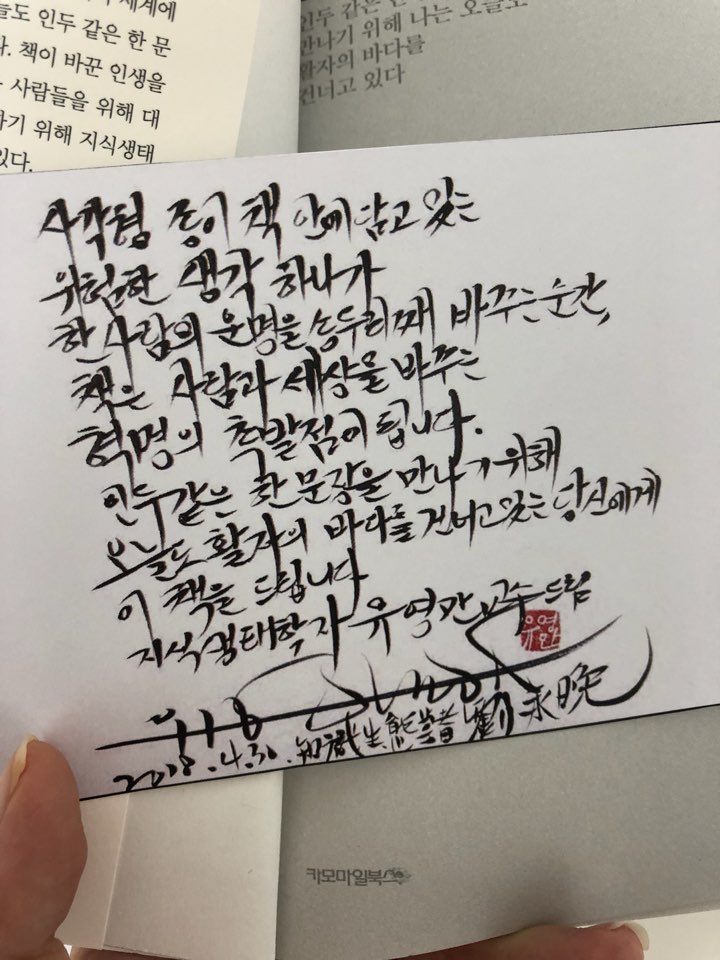 세계에
늘도 인두 같은 한 문
다. 책이 바꾼 인생을
사람들을 위해 대
나기 위해 지식생태
있다.
인두 같은 한
만나기 위해 나는 오늘도
활자의 바다를
건너고 있다
사각형 종이 책 안에 담고 있는
위험한 생각 하나가
한 사람의 운명을 송두리째 바꾸는 순간,
책은 사람과 세상을 바꾸는
혁명의 촉발점이 됩니다.
인두같은 한 문장을 만나기 위해
오늘도 활자의 바다를 건너고 있는 당신에게
이 책을 드립니다
지식생태학자 유영만 교수 드림
유영만
2018.4.30. 知識生態學者 劉永晩
카모마일북스